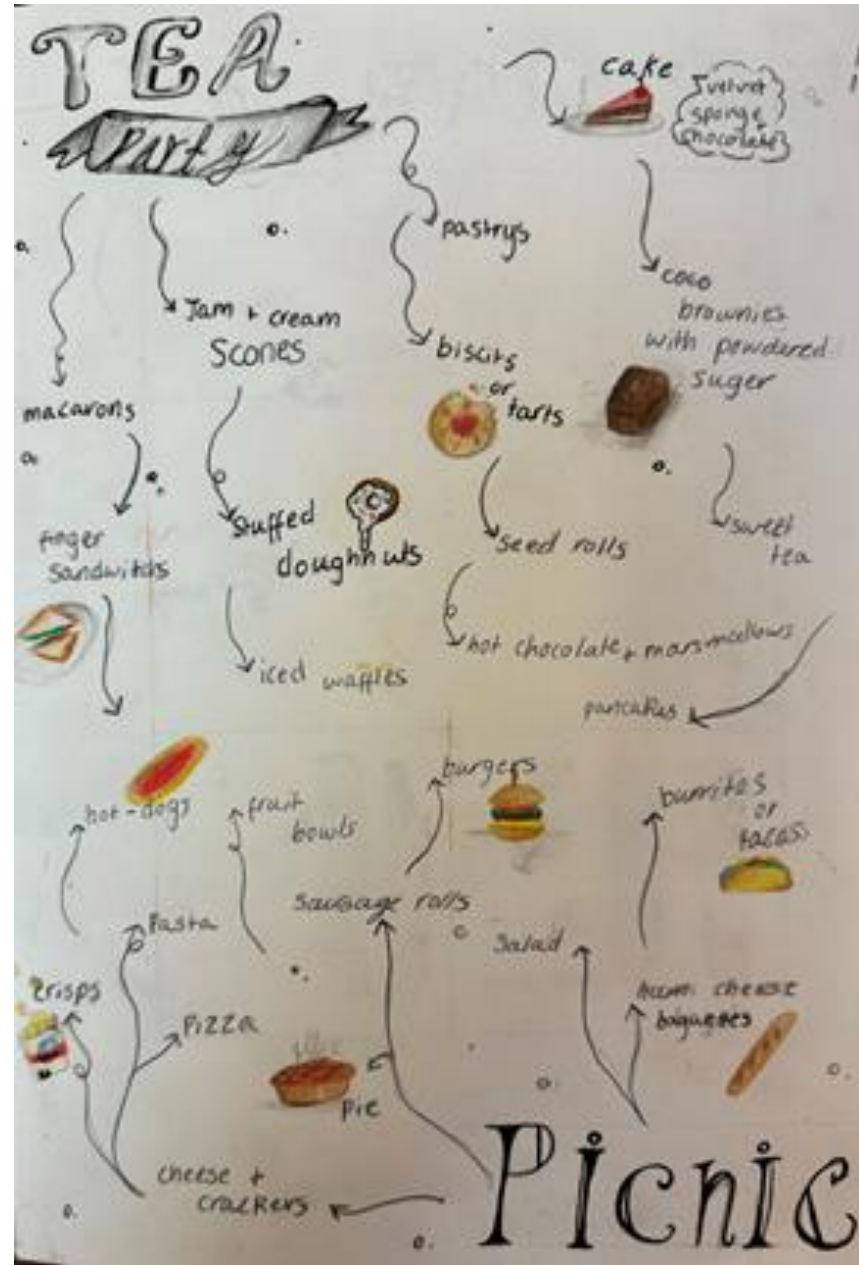 TEA
Party
cake
velvet
sponge
chocolate
pastrys
coco
brownies
with powdered
suger
Jam + cream
Scones
biscits
or
tarts
macarons
finger
sandwitchs
Stuffed
doughnuts
seed rolls
sweet
tea
iced waffles
hot chocolate + marsmellows
pancakes
burgers
hot-dogs
fruit
bowls
burritos
or
tacoss
sausage rolls
Pasta
Salad
crisps
Pizza
ham cheese
baguettes
Pie
cheese +
crackers
Picnic